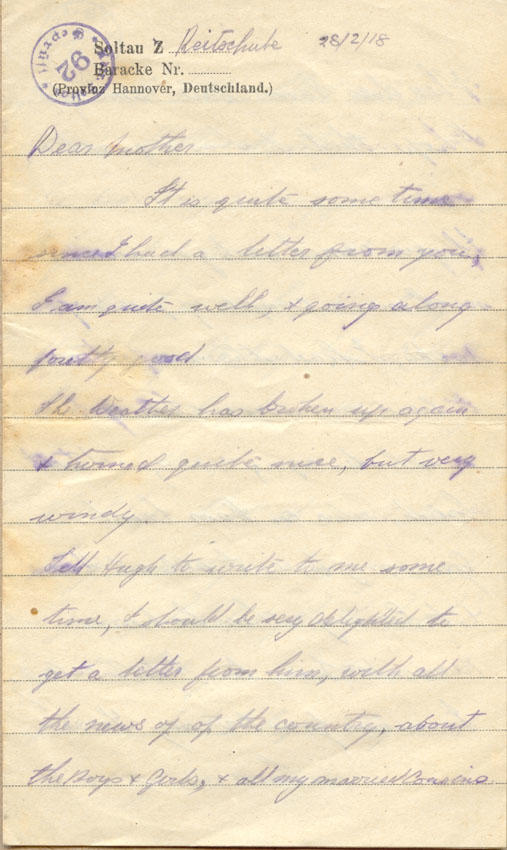 Soltau Z Reitschule 28/2/18
Baracke Nr.
(Provinz Hannover, Deutschland.)
92
Dear Mother
It is quite some time
since I had a letter from you,
I am quite well, & going along
pretty good
The Weather has broken up again
& turned quite nice, but very
windy
Tell Hugh to write to me some
time, I should be very delighted to
get a letter from him, with all
the news of of the country, about
the Boys & Girls, & all my married Cousins